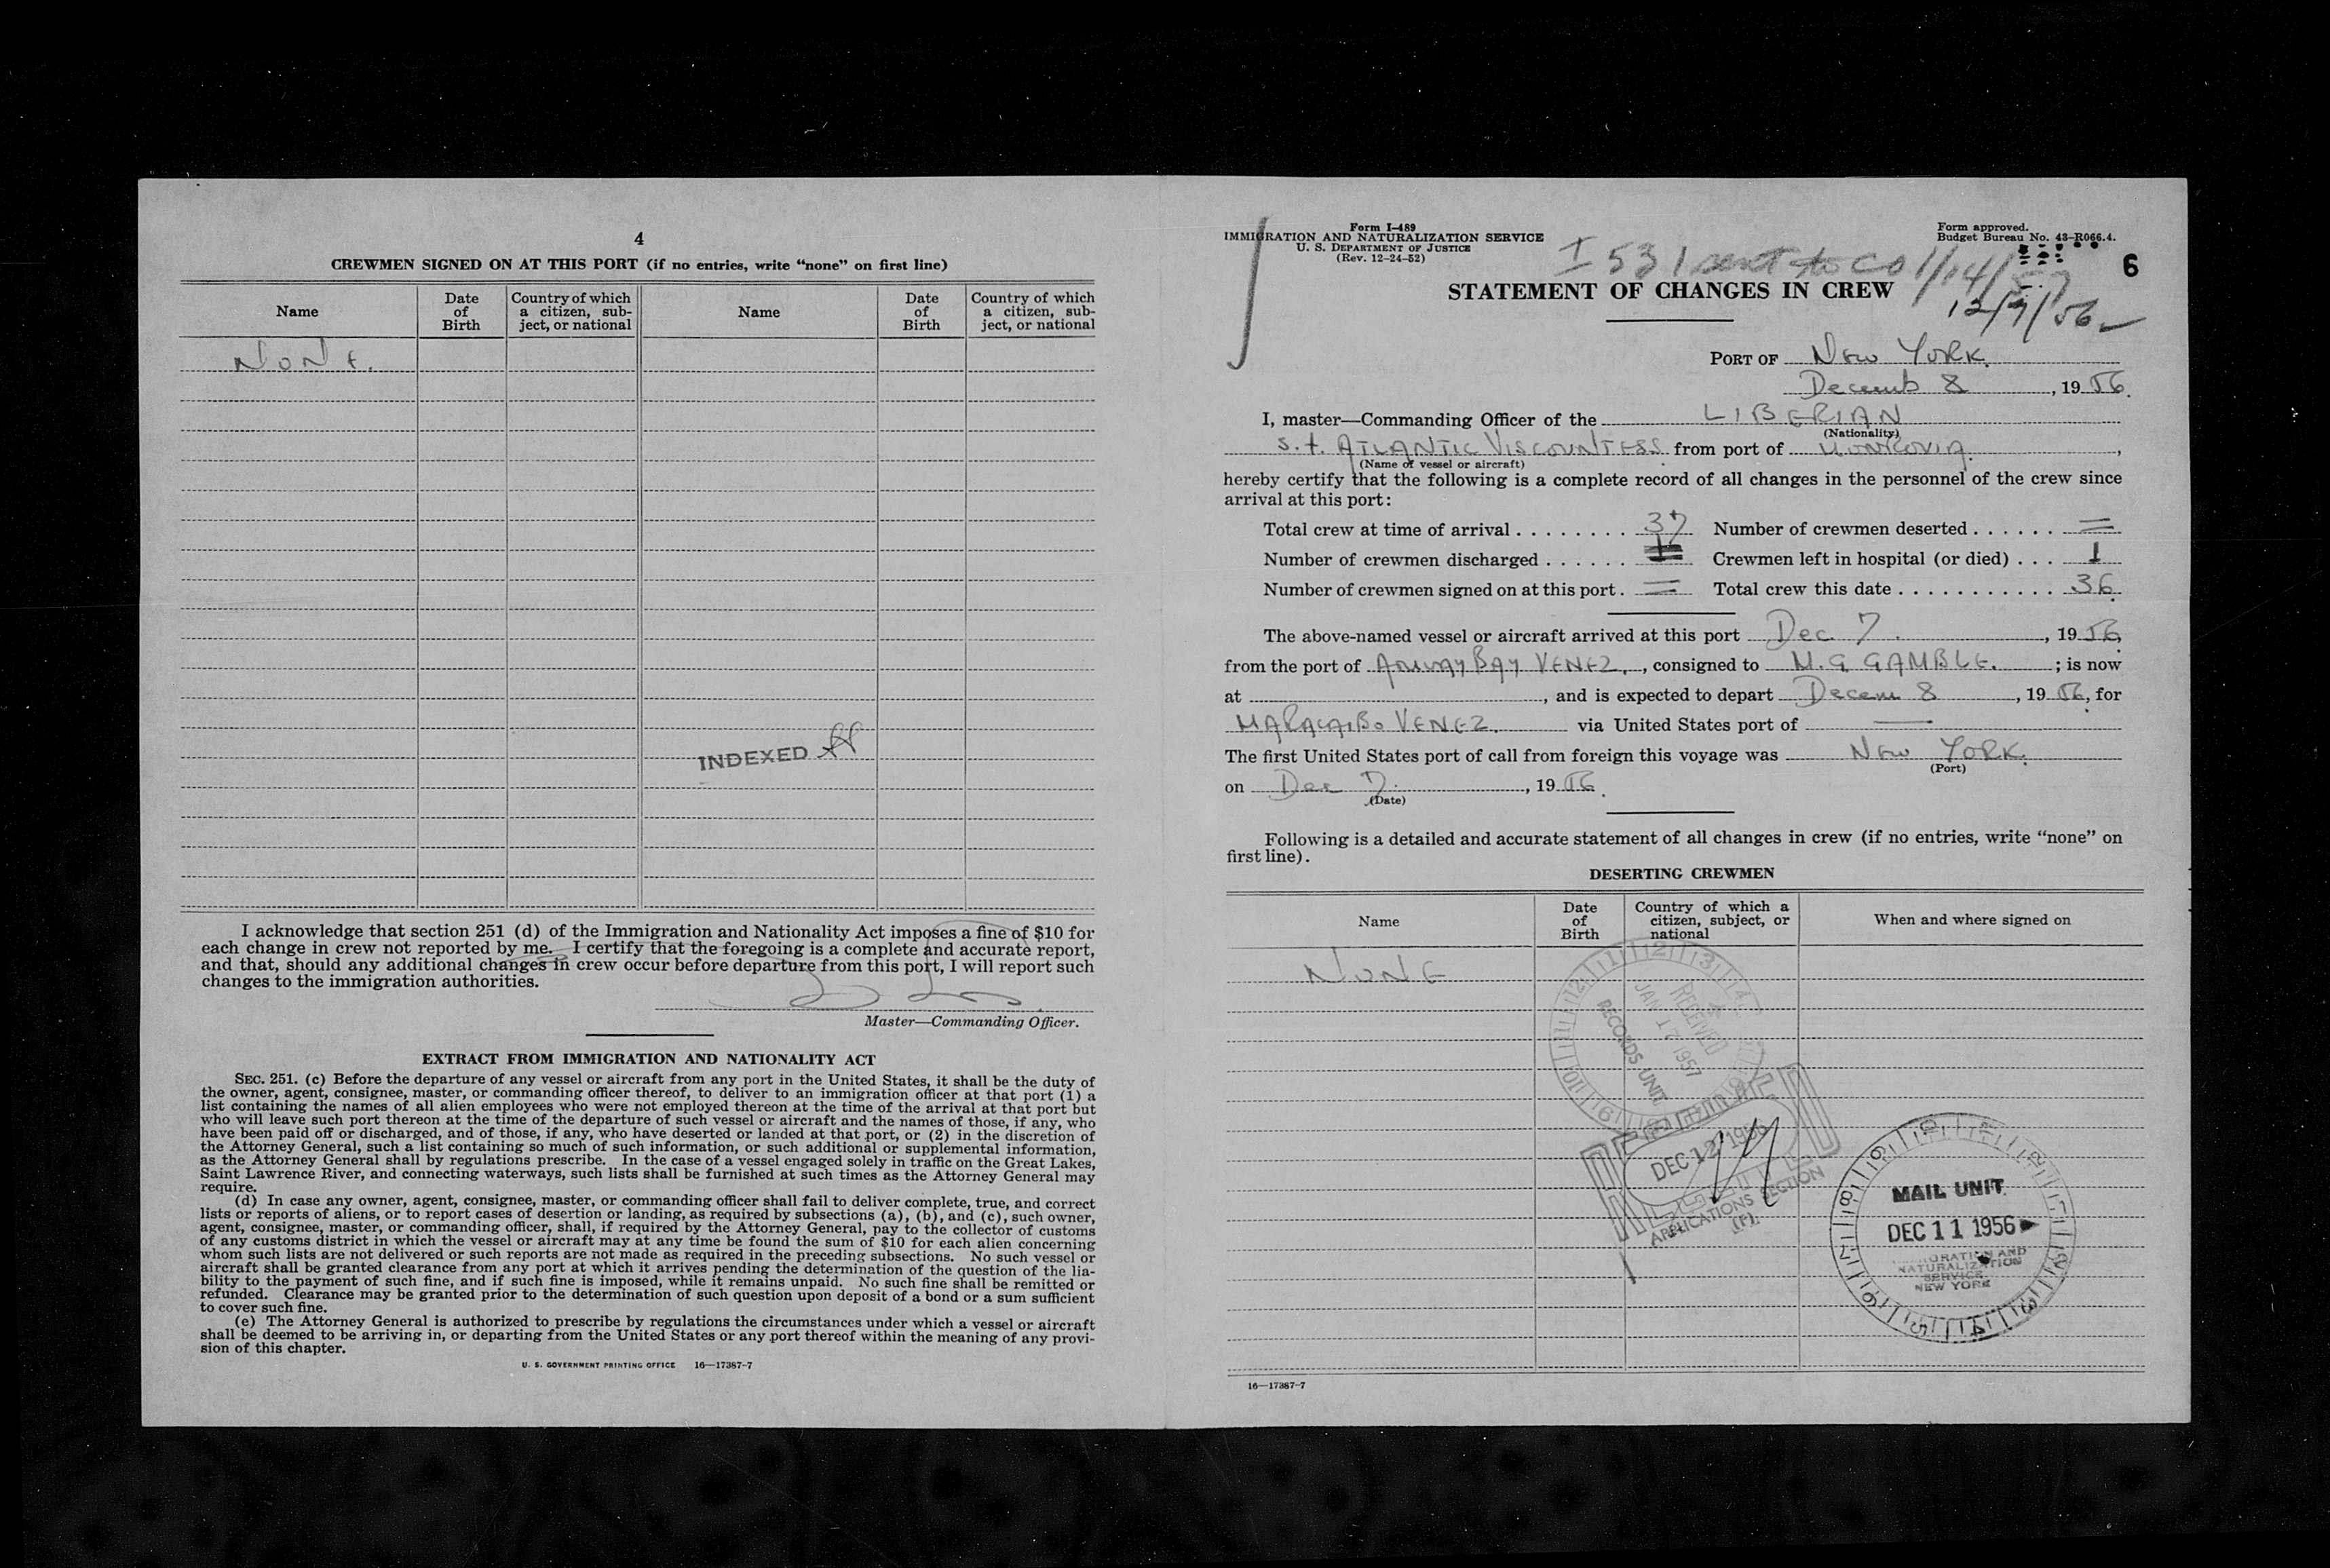 4
CREWMEN SIGNED ON AT THIS PORT (if no entries, write “none” on first line)
Name
Date of Birth
Country of which a citizen, sub-ject, or national
Name
Date of Birth
Country of which a citizen, sub-ject, or national
NONE.
INDEXED
I acknowledge that section 251 (d) of the Immigration and Nationality Act imposes a fine of $10 for
each change in crew not reported by me. I certify that the foregoing is a complete and accurate report,
and that, should any additional changes in crew occur before departure from this port, I will report such
changes to the immigration authorities.
Master—Commanding Officer.
EXTRACT FROM IMMIGRATION AND NATIONALITY ACT
SEC. 251. (c) Before the departure of any vessel or aircraft from any port in the United States, it shall be the duty of
the owner, agent, consignee, master, or commanding officer thereof, to deliver to an immigration officer at that port (1) a
list containing the names of all alien employees who were not employed thereon at the time of the arrival at that port but
who will leave such port thereon at the time of the departure of such vessel or aircraft and the names of those, if any, who
have been paid off or discharged, and of those, if any, who have deserted or landed at that port, or (2) in the discretion of
the Attorney General, such a list containing so much of such information, or such additional or supplemental information,
as the Attorney General shall by regulations prescribe. In the case of a vessel engaged solely in traffic on the Great Lakes,
Saint Lawrence River, and connecting waterways, such lists shall be furnished at such times as the Attorney General may
require.
(d) In case any owner, agent, consignee, master, or commanding officer shall fail to deliver complete, true, and correct
lists or reports of aliens, or to report cases of desertion or landing, as required by subsections (a), (b), and (c), such owner,
agent, consignee, master, or commanding officer, shall, if required by the Attorney General, pay to the collector of customs
of any customs district in which the vessel or aircraft may at any time be found the sum of $10 for each alien concerning
whom such lists are not delivered or such reports are not made as required in the preceding subsections. No such vessel or
aircraft shall be granted clearance from any port at which it arrives pending the determination of the question of the lia-
bility to the payment of such fine, and if such fine is imposed, while it remains unpaid. No such fine shall be remitted or
refunded. Clearance may be granted prior to the determination of such question upon deposit of a bond or a sum sufficient
to cover such fine.
(e) The Attorney General is authorized to prescribe by regulations the circumstances under which a vessel or aircraft
shall be deemed to be arriving in, or departing from the United States or any port thereof within the meaning of any provi-
sion of this chapter.
U. S. GOVERNMENT PRINTING OFFICE 16—17387-7
Form I-489
IMMIGRATION AND NATURALIZATION SERVICE
U. S. DEPARTMENT OF JUSTICE
(Rev. 12-24-52)
Form approved.
Budget Bureau No. 43-R066.4.
I 531 sent to CO 1/14/57
6
STATEMENT OF CHANGES IN CREW
12/7/56
PORT OF New YORK.
Decemb 8, 1956.
I, master—Commanding Officer of the LIBERIAN
(Nationality)
s.t. ATLANTIC VISCOUNTESS from port of MONROVIA.,
(Name of vessel or aircraft)
hereby certify that the following is a complete record of all changes in the personnel of the crew since
arrival at this port:
Total crew at time of arrival ........ 37 Number of crewmen deserted ...... =
Number of crewmen discharged ...... Crewmen left in hospital (or died) ... 1
Number of crewmen signed on at this port . = Total crew this date ............ 36.
The above-named vessel or aircraft arrived at this port Dec 7., 1956,
from the port of AMUAY BAY VENEZ., consigned to M. G. GAMBLE.; is now
at , and is expected to depart Decem 8, 1956, for
MARACAIBO VENEZ. via United States port of —
The first United States port of call from foreign this voyage was New YORK.
(Port)
on Dec 7., 1956.
(Date)
Following is a detailed and accurate statement of all changes in crew (if no entries, write “none” on
first line).
DESERTING CREWMEN
Name
Date of Birth
Country of which a citizen, subject, or national
When and where signed on
NONE
RECEIVED
JAN 17 1957
RECORDS UNIT
DEC 12 1956
APPLICATIONS SECTION
MAIL UNIT
DEC 11 1956
NATURALIZATION
SERVICE
NEW YORK
16—17387-7